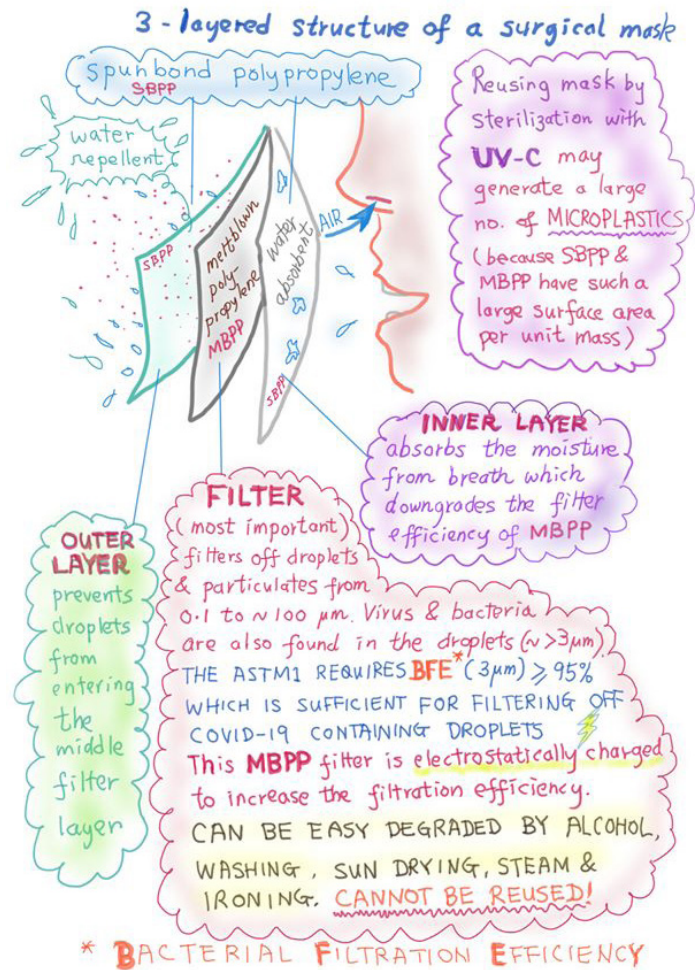 3-layered structure of a surgical mask
spunbond polypropylene
SBPP
water
repellent
SBPP
meltblown
poly-
propylene
MBPP
water
absorbent
SBPP
AIR
Reusing mask by
sterilization with
UV-C may
generate a large
no. of MICROPLASTICS
(because SBPP &
MBPP have such a
large surface area
per unit mass)
INNER LAYER
absorbs the moisture
from breath which
downgrades the filter
efficiency of MBPP
OUTER
LAYER
prevents
droplets
from
entering
the
middle
filter
layer
FILTER
(most important)
filters off droplets
& particulates from
0.1 to ~100 μm. Virus & bacteria
are also found in the droplets (~>3μm).
THE ASTM1 REQUIRES BFE* (3μm) ≥ 95%
WHICH IS SUFFICIENT FOR FILTERING OFF
COVID-19 CONTAINING DROPLETS
This MBPP filter is electrostatically charged
to increase the filtration efficiency.
CAN BE EASY DEGRADED BY ALCOHOL,
WASHING, SUN DRYING, STEAM &
IRONING. CANNOT BE REUSED!
* BACTERIAL FILTRATION EFFICIENCY